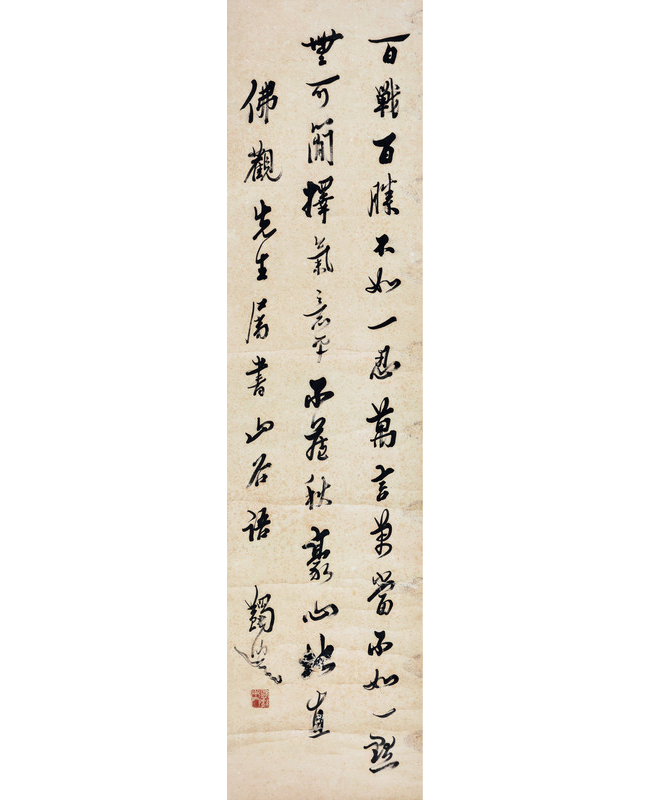 百戰百勝不如一忍萬言萬當不如一默
無可簡擇氣意平不藏秋豪心地直
佛觀先生屬書山谷語 蠲叟